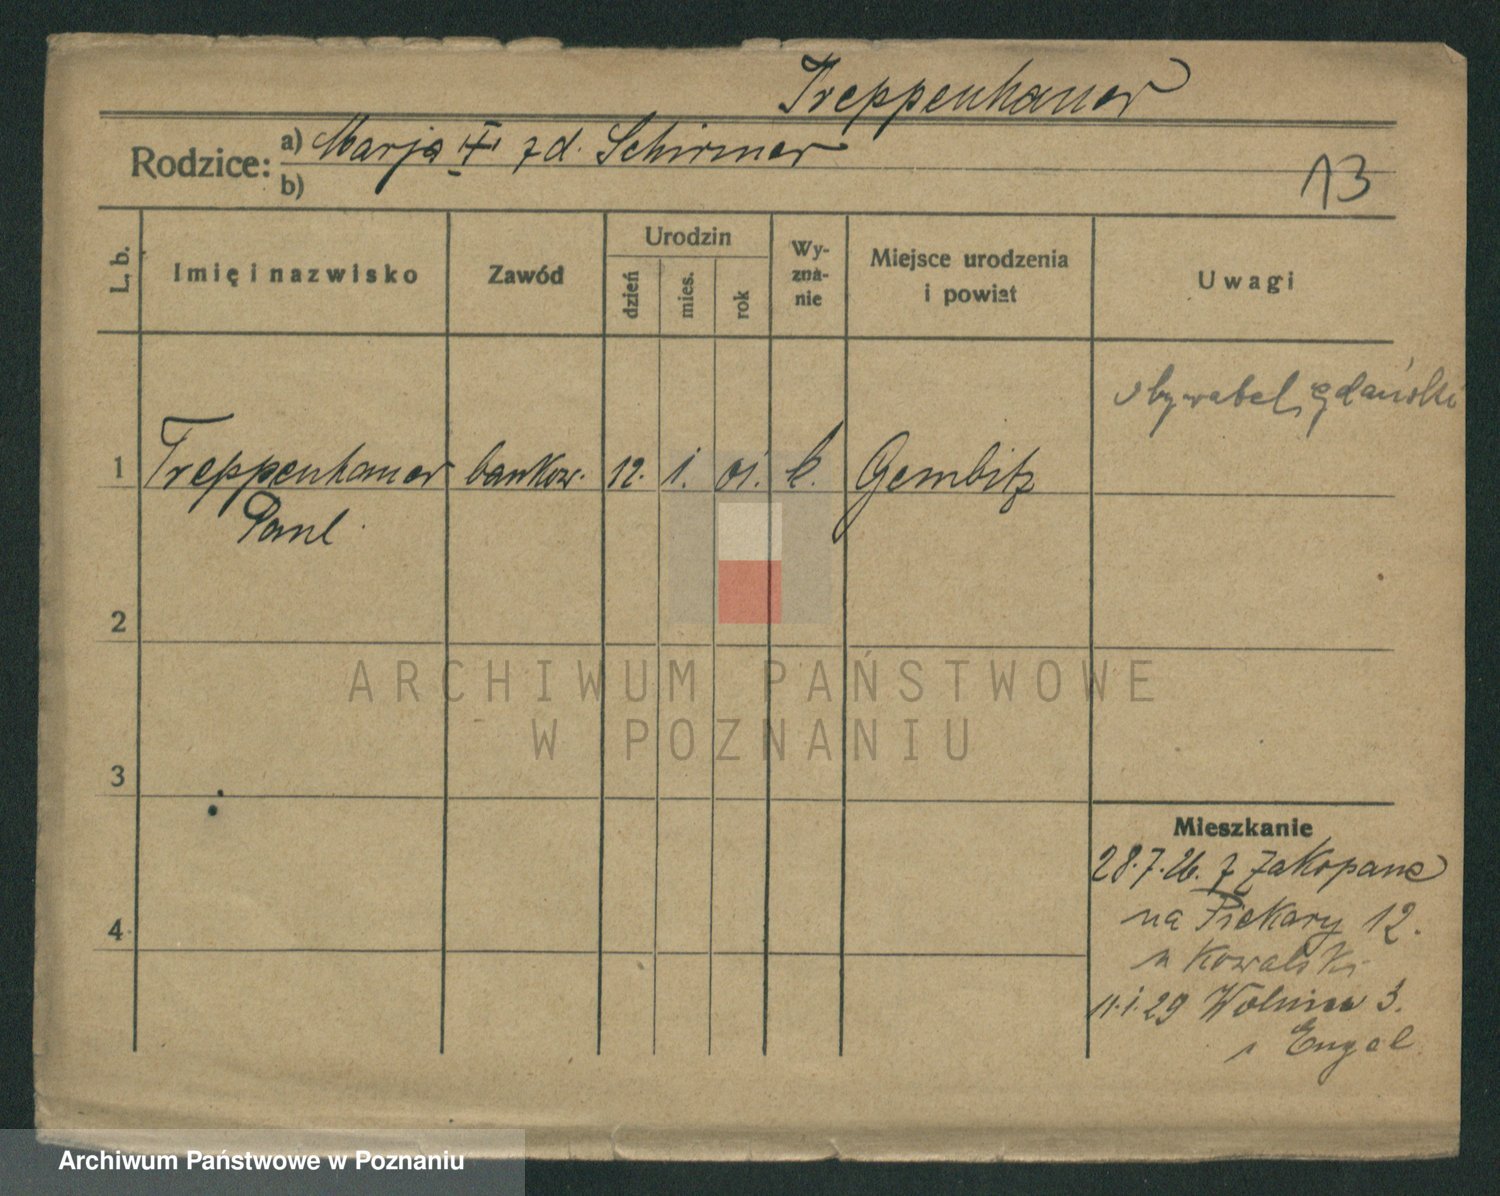 Treppenhauer
Rodzice: a) Marja I z d. Schirmer
b)
13
L. b.
Imię i nazwisko
Zawód
Urodzin
dzień
mies.
rok
Wy-
zna-
nie
Miejsce urodzenia
i powiat
Uwagi
obywatel gdański
1 Treppenhauer bankow. 12. 1. 01. k. Gembitz
Paul
2
3
4
Mieszkanie
28.7.26. z Zakopane
na Piekary 12.
u Kowalski
11.1.29 Wolnica 3.
Engel
ARCHIWUM PAŃSTWOWE
W POZNANIU
Archiwum Państwowe w Poznaniu